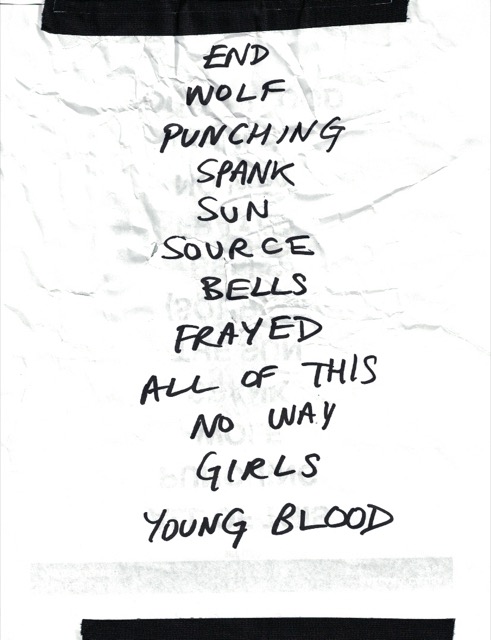 END
WOLF
PUNCHING
SPANK
SUN
SOURCE
BELLS
FRAYED
ALL OF THIS
NO WAY
GIRLS
YOUNG BLOOD